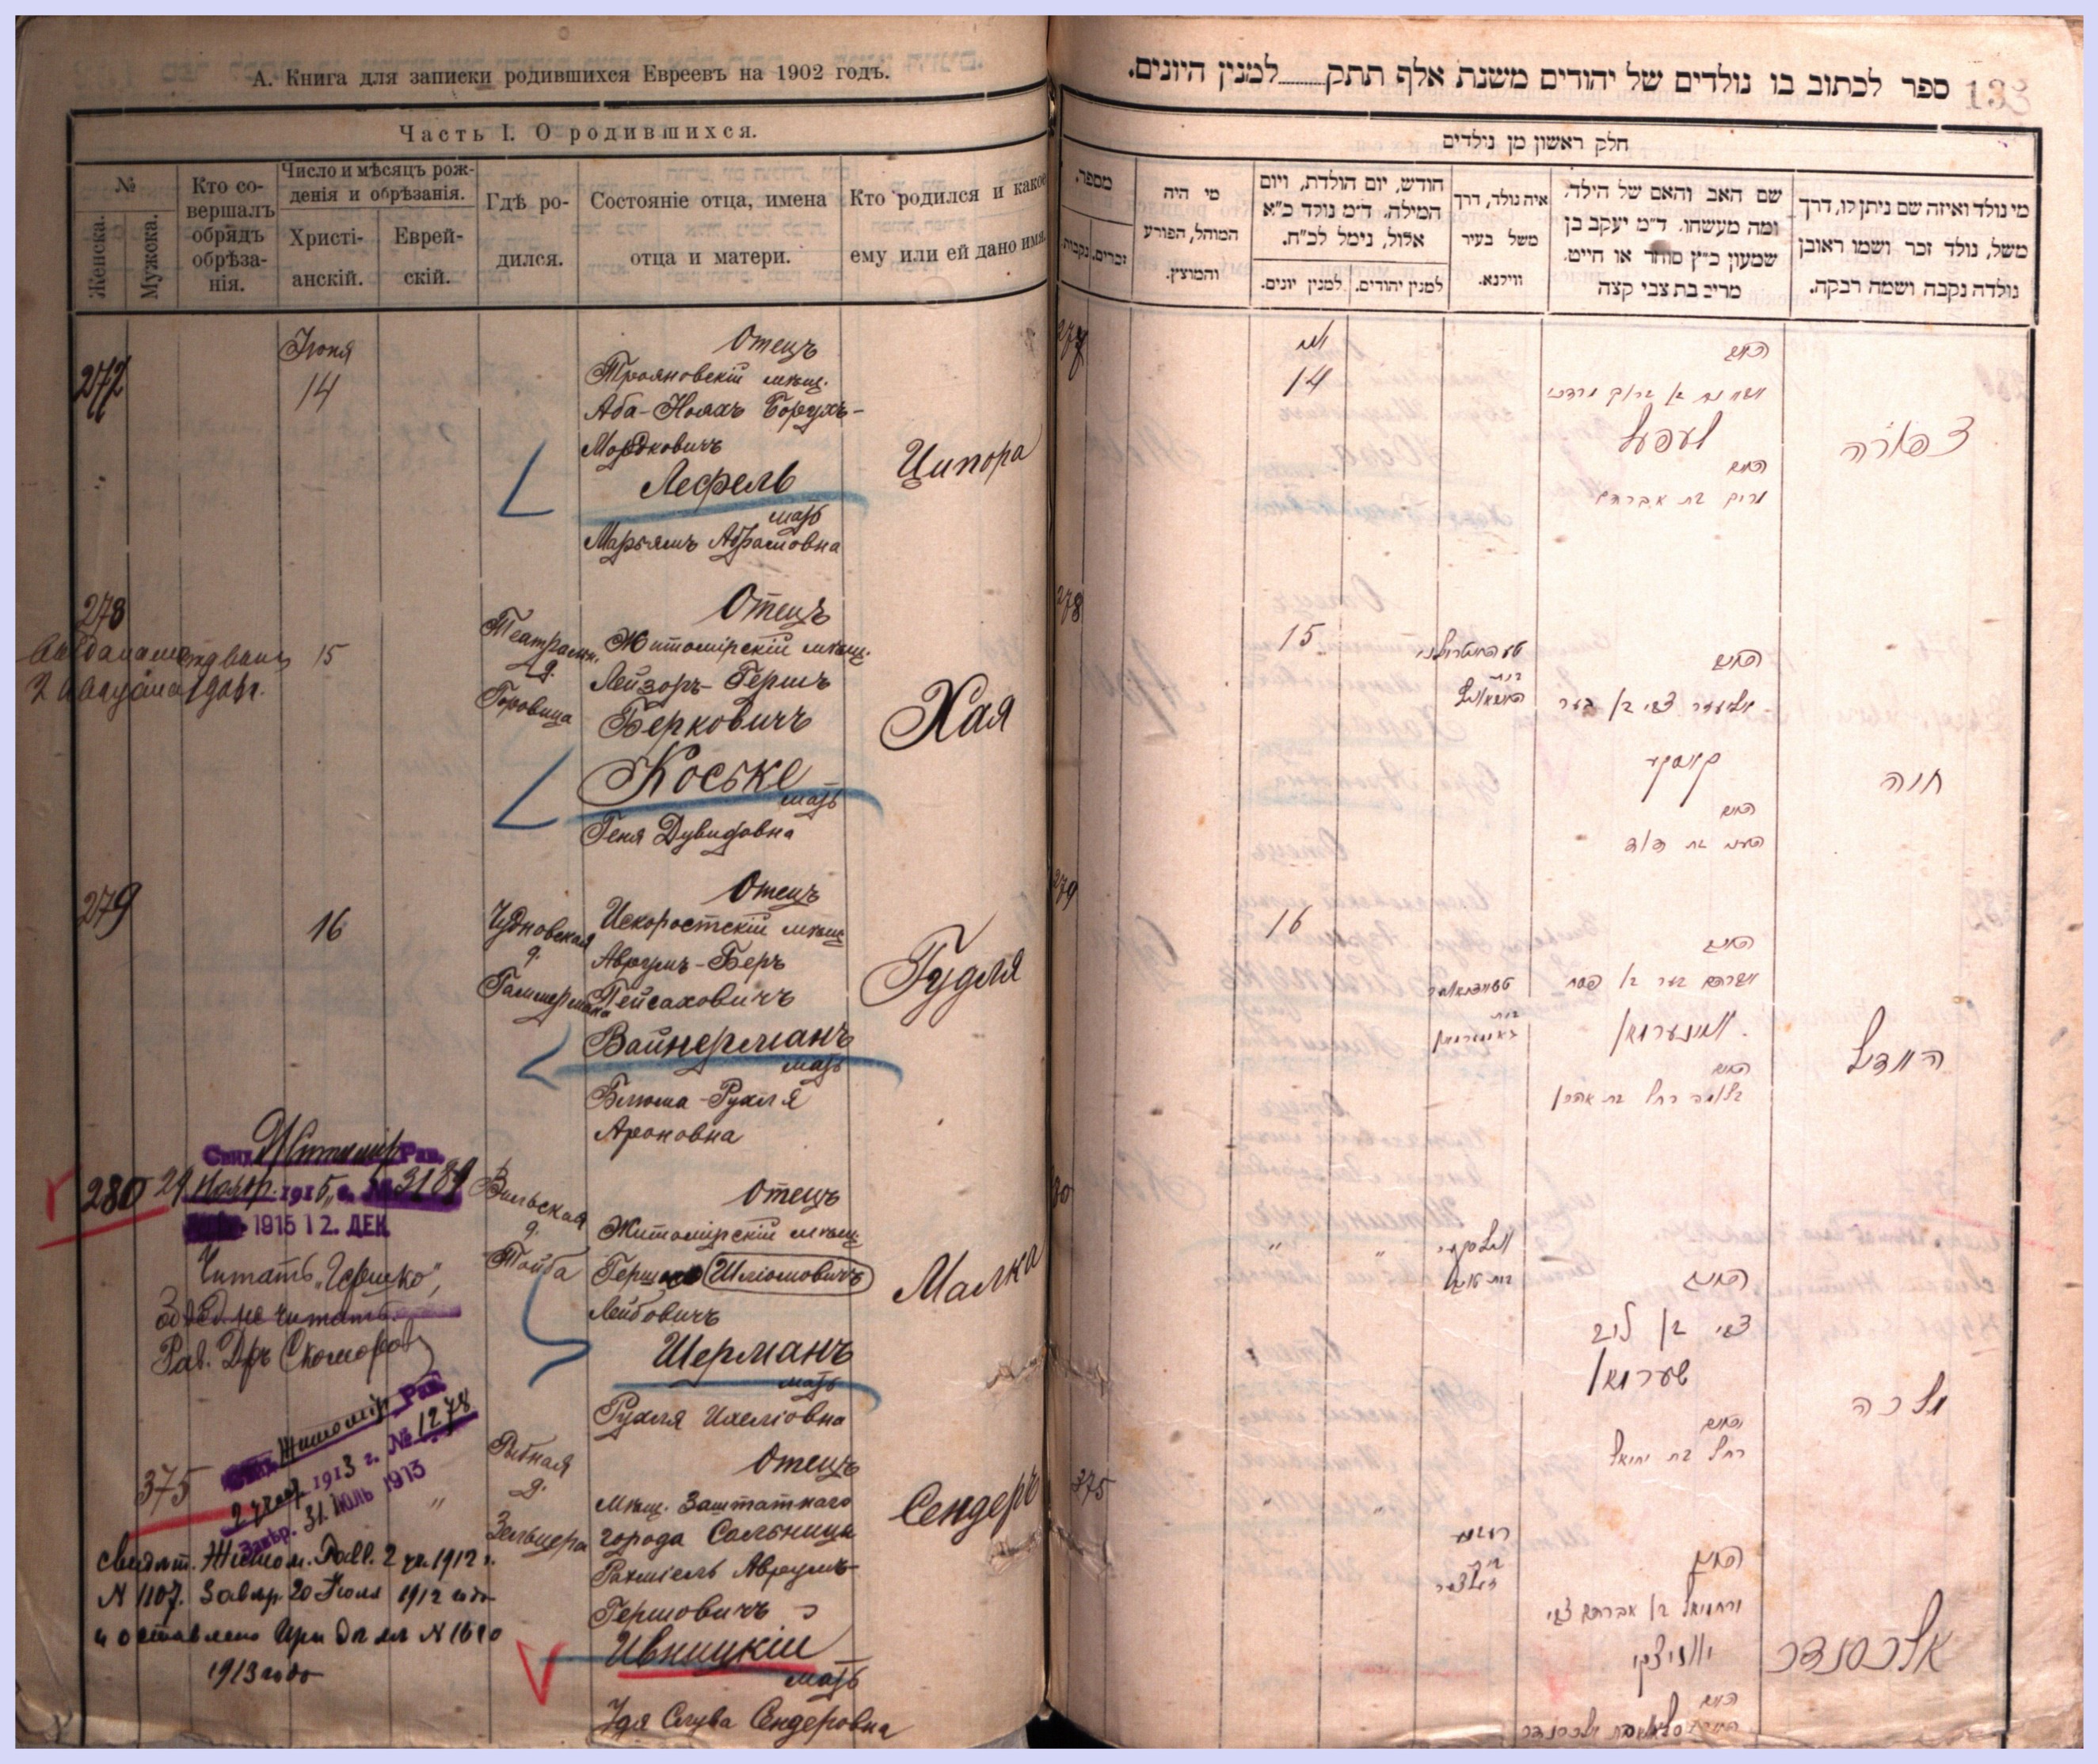 А. Книга для записки родившихся Евреевъ на 1902 годъ.
Часть I. О родившихся.
№
Женска.
Мужска.
Кто со-
вершалъ
обрядъ
обрѣза-
нія.
Число и мѣсяцъ рож-
денія и обрѣзанія.
Христі-
анскій.
Еврей-
скій.
Гдѣ ро-
дился.
Состояніе отца, имена
отца и матери.
Кто родился и какое
ему или ей дано имя.
277
Іюня
14
Отецъ
Трояновскій мѣщ.
Аба-Ноахъ Борухъ-
Мордковичъ
Лефель
мать
Марьямъ Абрамовна
Ципора
278
15
Театральн.
д.
Горовица
Отецъ
Житомірскій мѣщ.
Лейзоръ-Гершъ
Берковичъ
Коське
мать
Геня Дувидовна
Хая
279
16
Чудновская
д.
Гаммермана
Отецъ
Искоростскій мѣщ
Аврумъ-Беръ
Пейсаховичъ
Вайнерманъ
мать
Блюма-Рухля
Ароновна
Гудля
280
Свид. Житомір. Рав.
24 Нояр. 1915 г. № 3189
1915 12. ДЕК
Читать „Гершко",
Рав. Дръ Скоморов
Вильская
д.
Тойба
Отецъ
Житомірскій мѣщ.
Шліомовичъ
Лейбовичъ
Шерманъ
мать
Рухля Ихеліовна
Малка
375
Житомір Рав.
1913 г. № 1278
Завѣр. 31 ІЮЛЬ 1913
"
свидѣт. Житом. Равв. 2 1912 г.
N 1107. Завѣр 20 Іюля 1912 года
и оставлено при дѣлѣ N 1610
1913 года
Рыбная
д.
Зельцера
Отецъ
Мѣщ. Заштатнаго
города Сальница
Рахміель Аврумъ-
Гершовичъ
Ивницкій
мать
Удя Слува Сендеровна
Сендеръ
ספר לכתוב בו נולדים של יהודים משנת אלף תתק למנין היונים.
138
חלק ראשון מן נולדים
מספר.
זכרים.
נקבות
מי היה
המוהל, הפורע
והמוצץ.
חודש, יום הולדת, ויום
המילה. ד״מ נולד כ״א
אלול, נימל לכ״ח.
למנין יונים.
למנין יהודים.
איה נולד, דרך
משל בעיר
ווילנא.
שם האב והאם של הילד.
ומה מעשהו. ד״מ יעקב בן
שמעון כ״ץ סוחר או חייט.
מרים בת צבי קצה
מי נולד ואיזה שם ניתן לו, דרך
משל, נולד זכר ושמו ראובן
נולדה נקבה ושמה רבקה.
277
14
האב
לעפעל
האם
מרים בת אברהם
צפורה
278
15
האב
אליעזר צבי בן בער
קאסקע
האם
הענע בת דוד
חיה
279
16
האב
אברהם בער בן פסח
וויינערמאן
האם
בלומה רחל בת אהרן
הוודיל
80
"
"
ווילסקע
בית טויבע
האב
צבי בן ליב
שערמאן
האם
רחל בת יחיאל
מלכה
375
"
"
בית
זעלצער
האב
ירחמיאל בן אברהם צבי
איווניצקי
האם
אלכסנדר